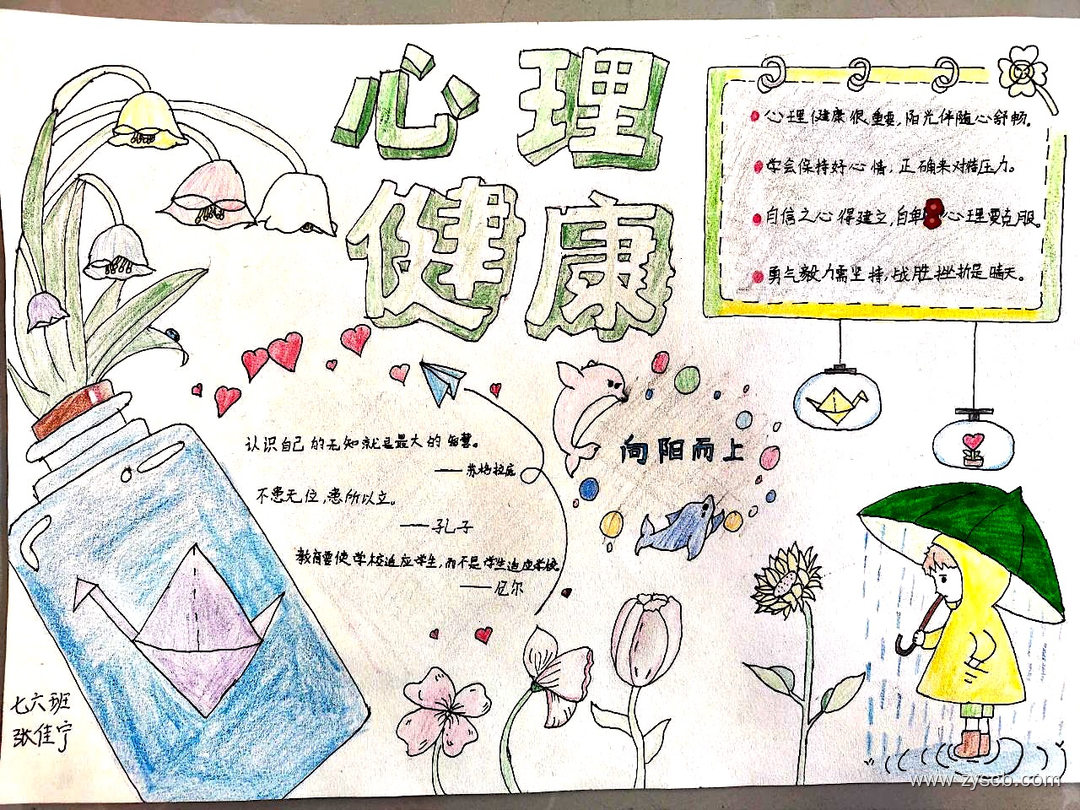 心理
健康
心理健康很重要,阳光伴随心舒畅。
学会保持好心情,正确来对待压力。
自信之心得建立,自卑心理要克服。
勇气毅力需坚持,战胜挫折是晴天。
认识自己的无知就是最大的智慧。
——苏格拉底
不患无位,患所以立。
——孔子
教育要使学校适应学生,而不是学生适应学校
——尼尔
向阳而上
七六班
张佳宁
www.zyscb.com